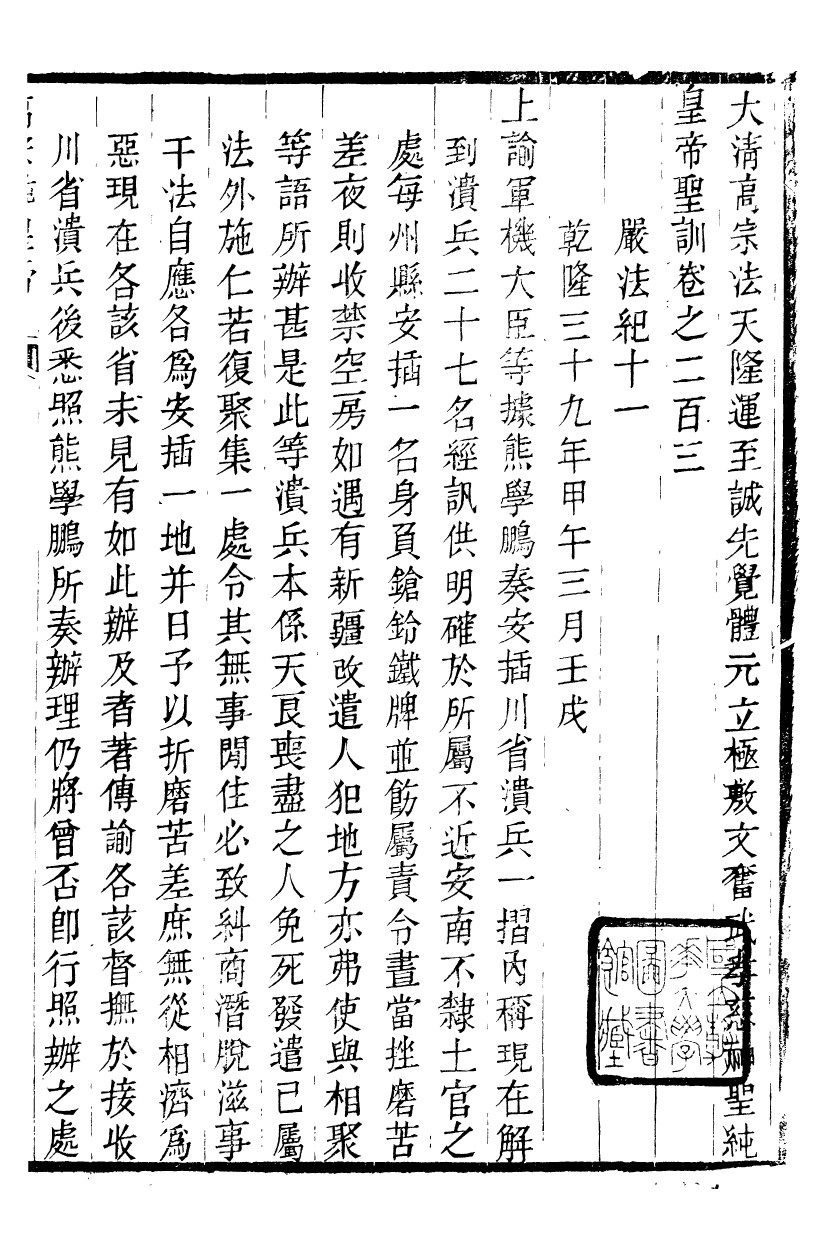 大清高宗法天隆運至誠先覺體元立極敷文奮武孝慈神聖純
皇帝聖訓卷之二百三
嚴法紀十一
乾隆三十九年甲午三月壬戌
上諭軍機大臣等據熊學鵬奏安插川省潰兵一摺內稱現在解
到潰兵二十七名經訊供明確於所屬不近安南不隸土官之
處每州縣安插一名身負鎗鈴鐵牌並飭屬責令晝當挫磨苦
差夜則收禁空房如遇有新疆改遣人犯地方亦弗使與相聚
等語所辦甚是此等潰兵本係天良喪盡之人免死發遣已屬
法外施仁若復聚集一處令其無事閒住必致糾商潛脫滋事
干法自應各爲安插一地并日予以折磨苦差庶無從相濟爲
惡現在各該省未見有如此辦及者著傳諭各該督撫於接收
川省潰兵後悉照熊學鵬所奏辦理仍將曾否卽行照辦之處